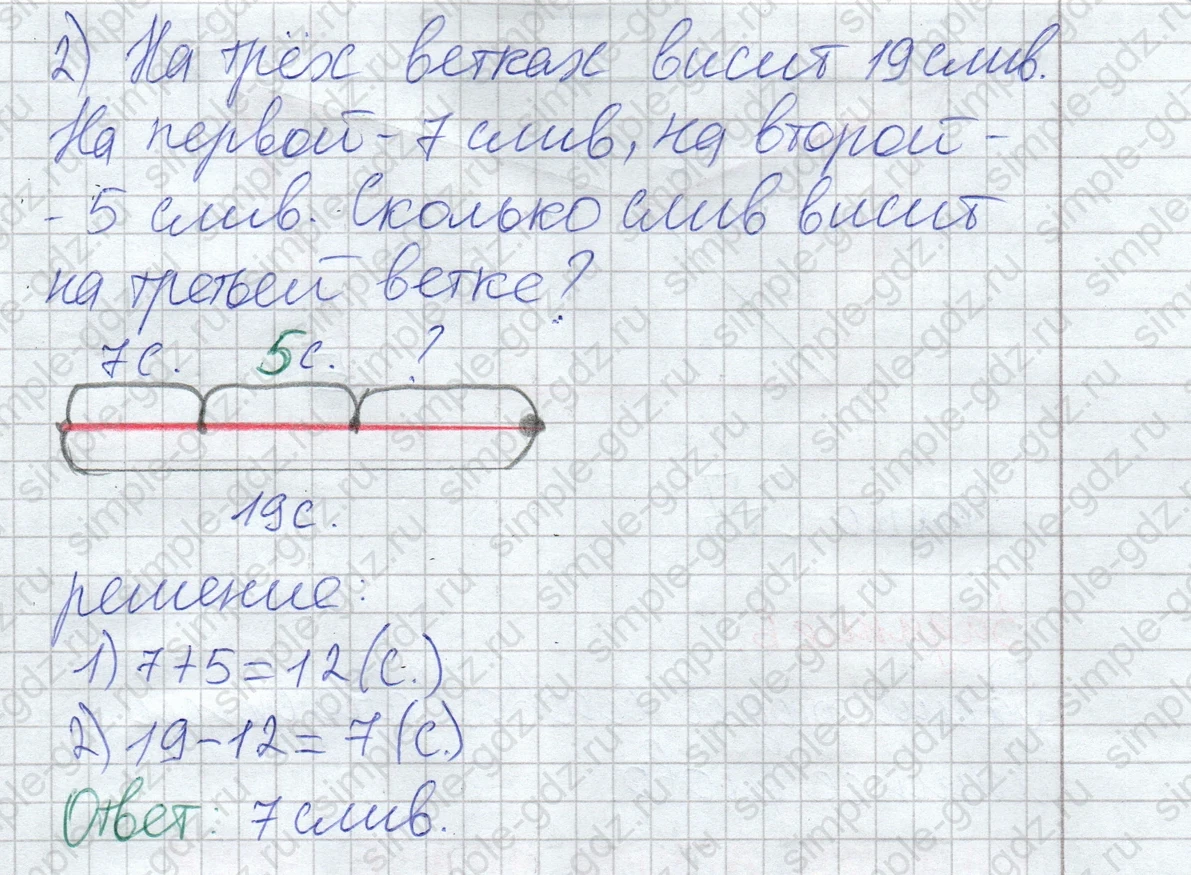 2) На трёх ветках висит 19 слив.
На первой - 7 слив, на второй -
- 5 слив. Сколько слив висит
на третьей ветке?
7с. 5с. ?
19с.
решение:
1) 7+5=12(с.)
2) 19-12=7(с.)
Ответ: 7 слив.
simple-gdz.ru